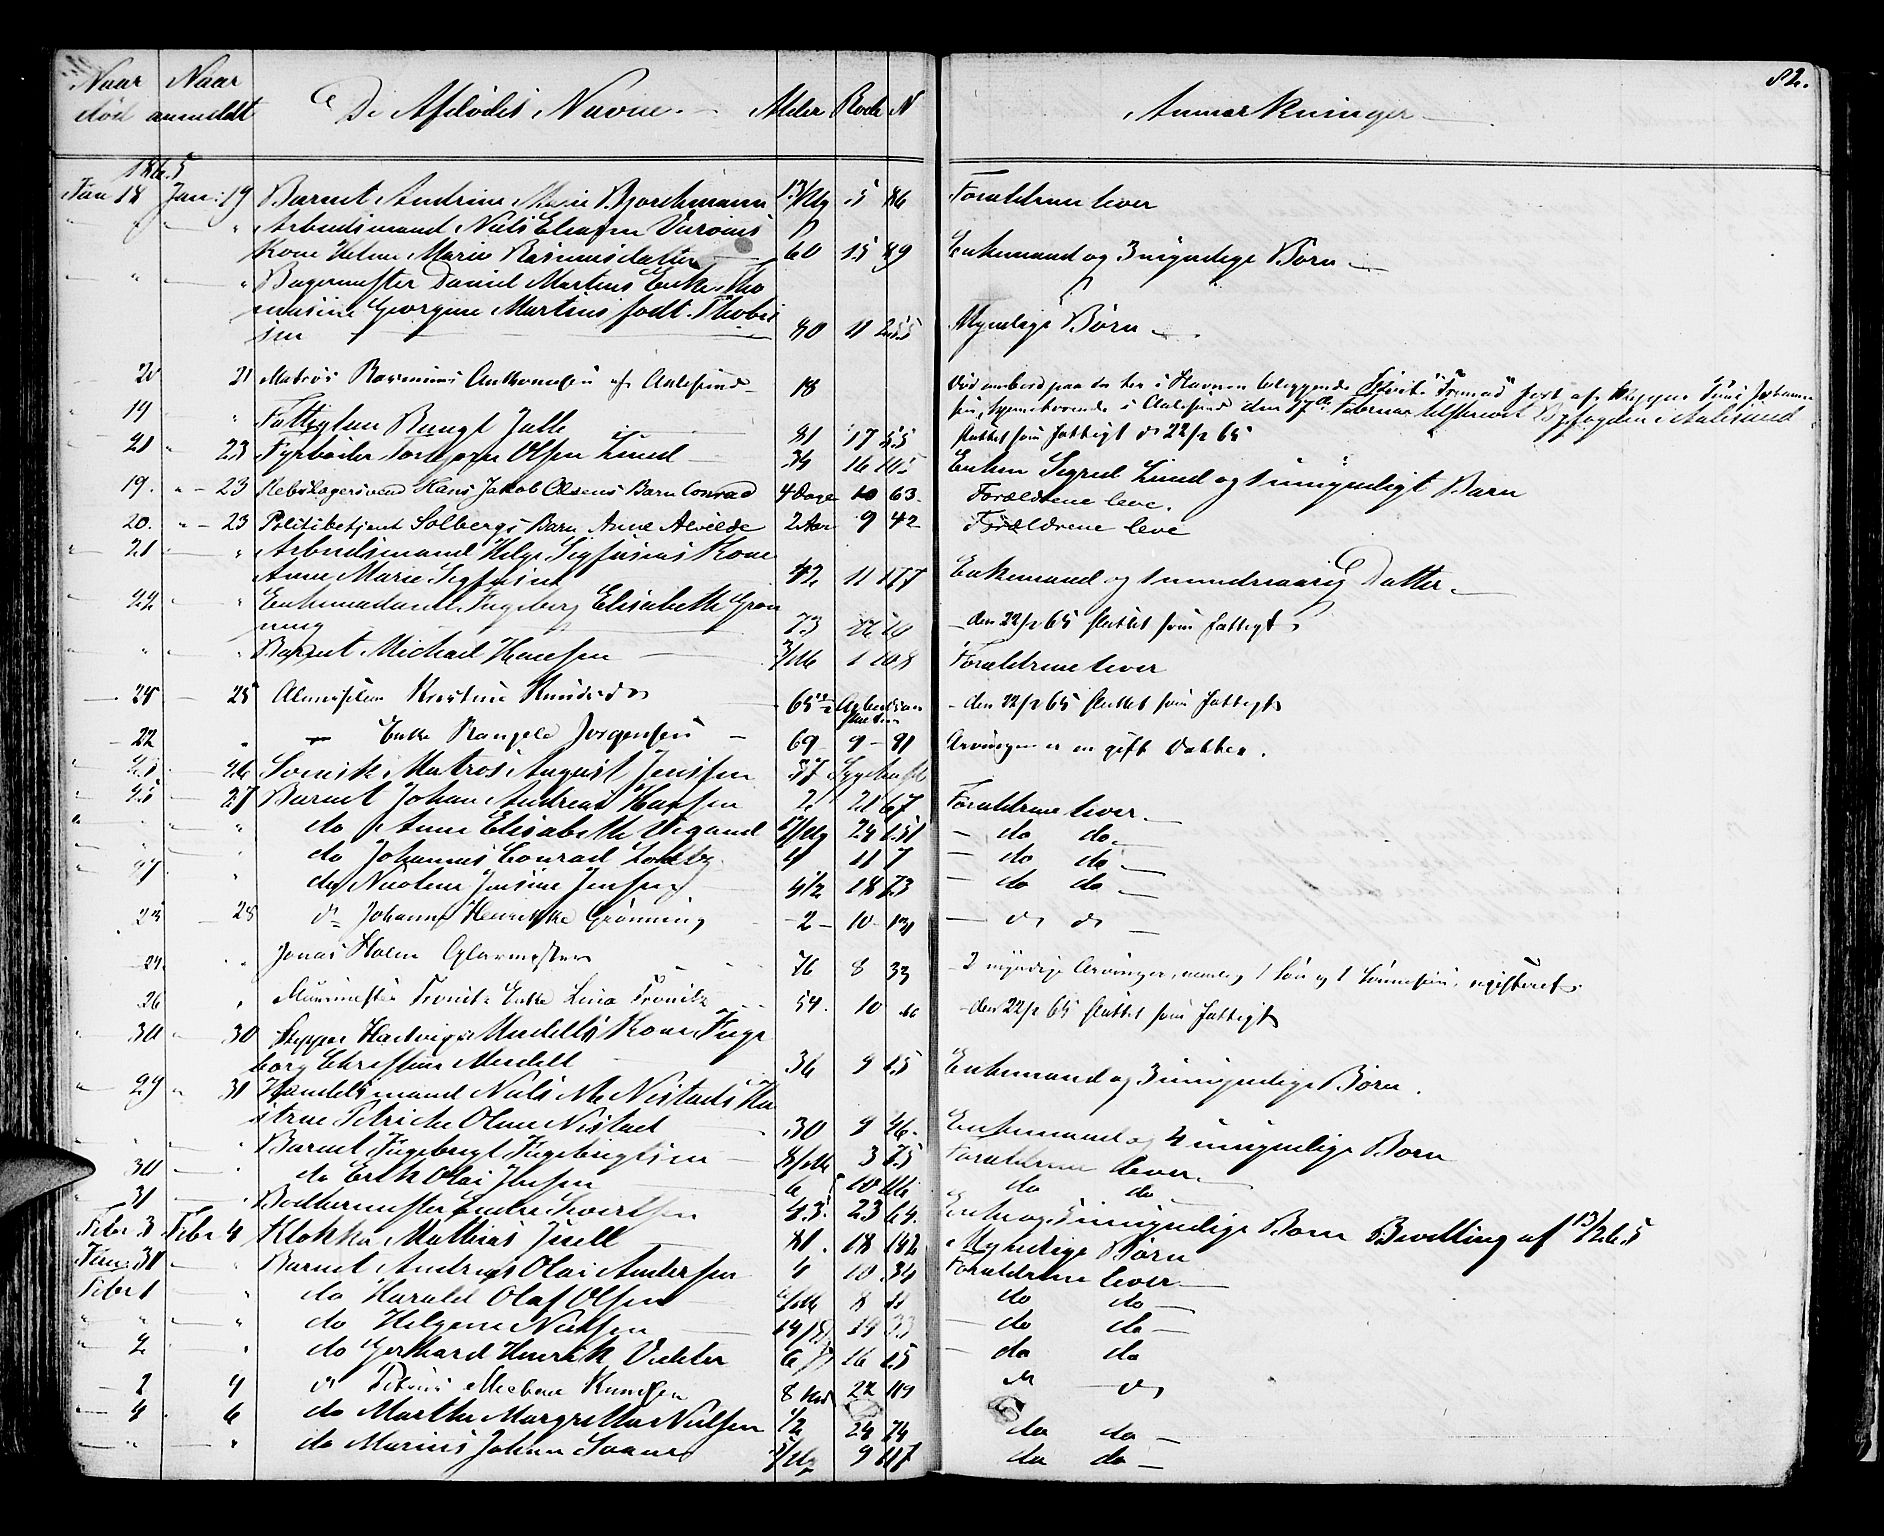 82.
Naar død Naar anmeldt De Afdødes Navne. Alder Rode N Anmærkninger
1865
Jan 18 Jan: 19 Barnet Andrine Marie Bjorchmann 5 86 Forældrene lever
Arbeidsmand Niels
Kone Helene Marie Rasmusdatter 60 15 89 Enkemand og 3 umyndige Børn
Bagermester Daniel Martins Enke Tho
masine Georgine Martins født Thobia
sen 80 11 255 Myndige Børn
20 21 Matros Rasmus Anthonesen af Aalesund 18 Død ombord paa den her i Havnen beliggende
i Aalesund den 17de Februar tilskrevet Byfogden i Aalesund
19 " Fattiglem Bengt Jelle 81 17 55 sluttet som fattigt d 22/2 65
21 23 Fyrbøder Torbjørn Olsen Lund 34 16 105 Enken Sigrid Lund og 1 umyndigt Barn
19. " 23 Rebslagersvend Hans Jakob Olsens Barn Conrad 4 Dage 10 63. Forældrene leve.
20. " 23 Politibetjent Solbergs Barn Anne Alvilde 2 Aar 9 42 Forældrene leve
21 " Arbeidsmand Helge Sigfusens Kone
Anne Marie Sigfusen 42 11 177 Enkemand og 1 mindreaarig Datter
22 " Enkemadame Ingeborg Elisabeth Grøn
ning 73 10 den 22/2 65 sluttet som fattigt
" " Barnet Michael Hansen 3/M 1 108 Forældrene lever
24 25 Almisselem Kirstine Knudsd 65 Arbeidsan
stalten den 22/2 65 sluttet som fattigt
22 " Enke Rangele Jørgensen 69 9 81 Arvingen er en gift Datter.
23 26 Svensk Matros August Jenssen 37 Sygehuset
25 27 Barnet Johan Andreas Hansen 2 21 67 Forældrene lever
" " do Anne Elisabeth Wigand 24 151 do do
" " do Johannes Conrad 4 11 7 do do
27 " do Nicoline Jensine Jensen 4 1/2 18 73 do do
23 28 do Johanne Henrikke Grønning 2 10 131 do do
24. " Jonas Holm Glarmester 76 8 33 2 myndige Arvinger, nemlig 1 Søn og 1 Sønnesøn, registreret
26 " Muurmester Tronitz Enke Lina Tronitz 54. 10 den 22/2 65 sluttet som fattigt
30 30 Skipper Hartvig Mendells Kone Inge
borg Christine Mendell 36 9 15 Enkemand og 3 umyndige Børn.
29 31 Handelsmand Niels M Nistads Hu
strue Petrikke Oline Nistad 30 9 26. Enkemand og 4 umyndige Børn
" " Barnet Ingebrigt Ingebrigtsen 8/M 3 75 Forældrene lever
30 " do Erik Olai Jensen 6 10 116 do do
31 " Bødkermester Endre Sivertsen 43. 23 64. Enke og 5 umyndige Børn Bevilling af 13/2 65
Febr 3 Febr 4 Klokker Mathias Juell 81. 18 182 Myndige Børn
Jan: 31 " Barnet Andreas Olai Andersen 4 10 34 Forældrene lever
Febr 1 " do Harald Olaf Olsen 8 do do
" " do Helgine Nielsen 14/D 19 33 do do
2 " do Gerhard Henrik Vedeler 6 16 15 do do
2 4 do Petrine Meebene Knudsen 8 22 119 do do
4 6 do Marthe Margrethe Nielsen 1/2 24 74 do do
" " do Marius Johan Svane 9 117 do do